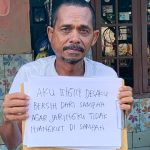 AKU INGIN DESAKU
BERSIH DARI SAMPAH
AGAR JARINGKU TIDAK
NYANGKUT DI SAMPAH